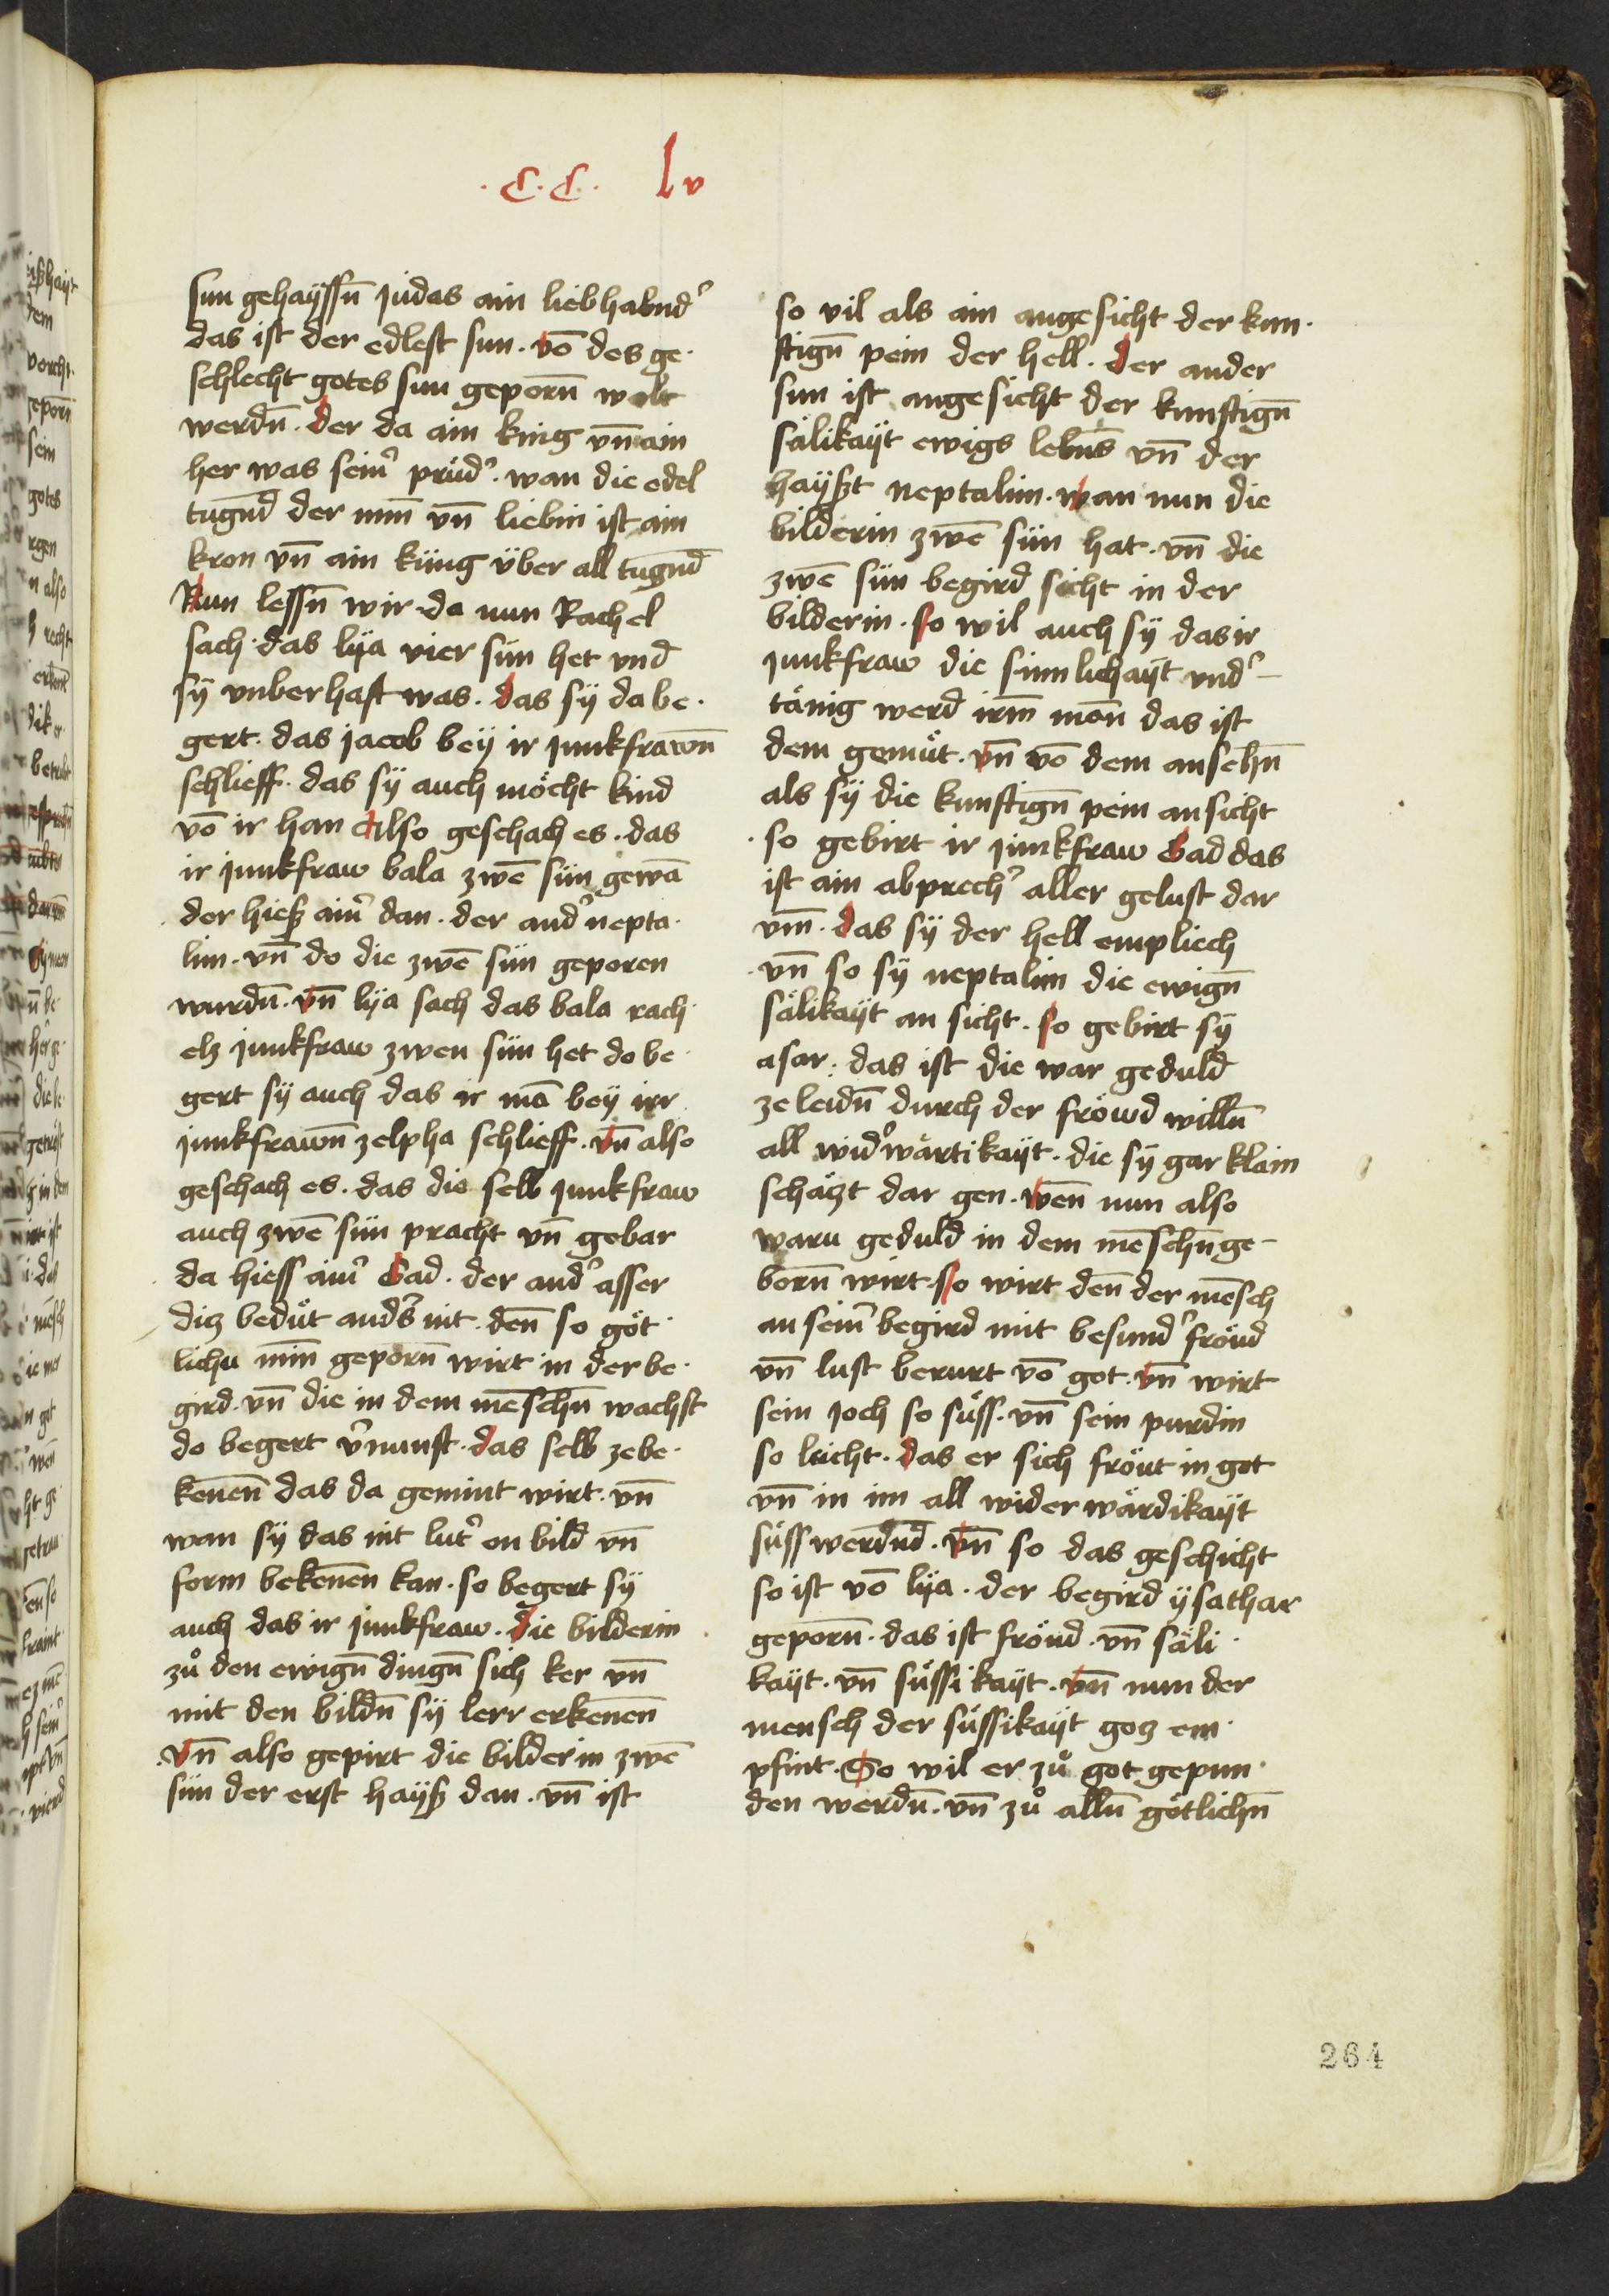 .C.C. lv
sun gehayssn̄ judas ain liebhabndˀ
das ist der edlest sun. vō des ge·
schlecht gotes sun geporn̄ wolt
werdn̄. der da ain kn̈ig vn̄ ain
her was seinˀ prüdˀ. wan die edel
tugnd̄ der min̄ vn̄ liebin ist ain
kron vn̄ ain küng über all tugnd̄
Nun lessn̄ wir da nun Rachel
sach. das lÿa vier sün het vnd
sÿ vnberhaft was. das sÿ da be·
gert. das jacob beÿ ir junkfrawn̄
schlieff. das sÿ auch möcht kind
vō ir han Also geschach es. das
ir junkfraw bala zwē sün gewā
der hieß ainˀ dan. der andˀ nepta·
lim. vn̄ do die zwē sün geporen
wurdn̄. vn̄ lÿa sach das bala rach·
elz junkfraw zwen sün het do be·
gert sÿ auch das ir mā beÿ irr
junkfrawn̄ zelpha schlieff. vn̄ also
geschach es. das die selb junkfraw
auch zwē sün pracht vn̄ gebar
da hiess ainˀ Gad. der andˀ asser
diz bedüt andˀs nit. den̄ so göt·
lichu min̄ geporn̄ wirt in der be·
gird. vn̄ die in dem mēschn̄ wachst
do begert vˀnunft. das selb ze be·
kenen̄ das da gemint wirt. vn̄
wan sÿ das nit lutˀ on bild vn̄
form bekenen̄ kan. so begert sÿ
auch das ir junkfraw. die bilderin
zů den ewign̄ dingn̄ sich ker vn̄
mit den bildn̄ sÿ lerr erkenen̄
Vn̄ also gepirt die bilderin zwē
sün der erst hayß dan. vn̄ ist
so vil als ain angesicht der kun·
ftign̄ pein der hell. der ander
sun ist angesicht der kunftign̄
sälikaÿt ewigs lebn̄s vn̄ der
haÿßt neptalim. wan nun die
bilderin zwē sün hat. vn̄ die
zwē sün begird sicht in der
bilderin. so wil auch sÿ das ir
junkfraw die sinnlichaÿt vndˀ-
tänig werd irm̄ mon̄ das ist
dem gemüt. vn̄ vō dem ansehn̄
als sÿ die kunftign̄ pein ansicht
so gebirt ir junkfraw Gad das
ist ain abprechˀ aller gelust dar
vm̄. das sÿ der hell empliech
vn̄ so sÿ neptalim die ewign̄
sälikaÿt an sicht. so gebirt sÿ
asar: das ist die war geduld
ze leidn̄ durch der fröwd willn̄
all widˀwärtikaÿt. die sÿ gar klain
schäczt dar gen. wen̄ nun also
waru geduld in dem mēschn̄ ge-
born̄ wirt. so wirt den̄ der mēsch
an seinˀ begird mit besundˀ fröud
vn̄ lust berurt vō got. vn̄ wirt
sein joch so süss. vn̄ sein purdin
so licht. das er sich fröut in got
vn̄ in im all widerwärdikaÿt
süss werdnd̄. vn̄ so das geschicht
so ist vō lÿa. der begird ÿsathar
geporn̄. das ist fröud. vn̄ säli·
kaÿt. vn̄ süssikaÿt. vn̄ nun der
mensch der süssikaÿt gotz em·
pfint. So wil er zů got gepun·
den werdn̄. vn̄ zů alln̄ götlichn̄
264